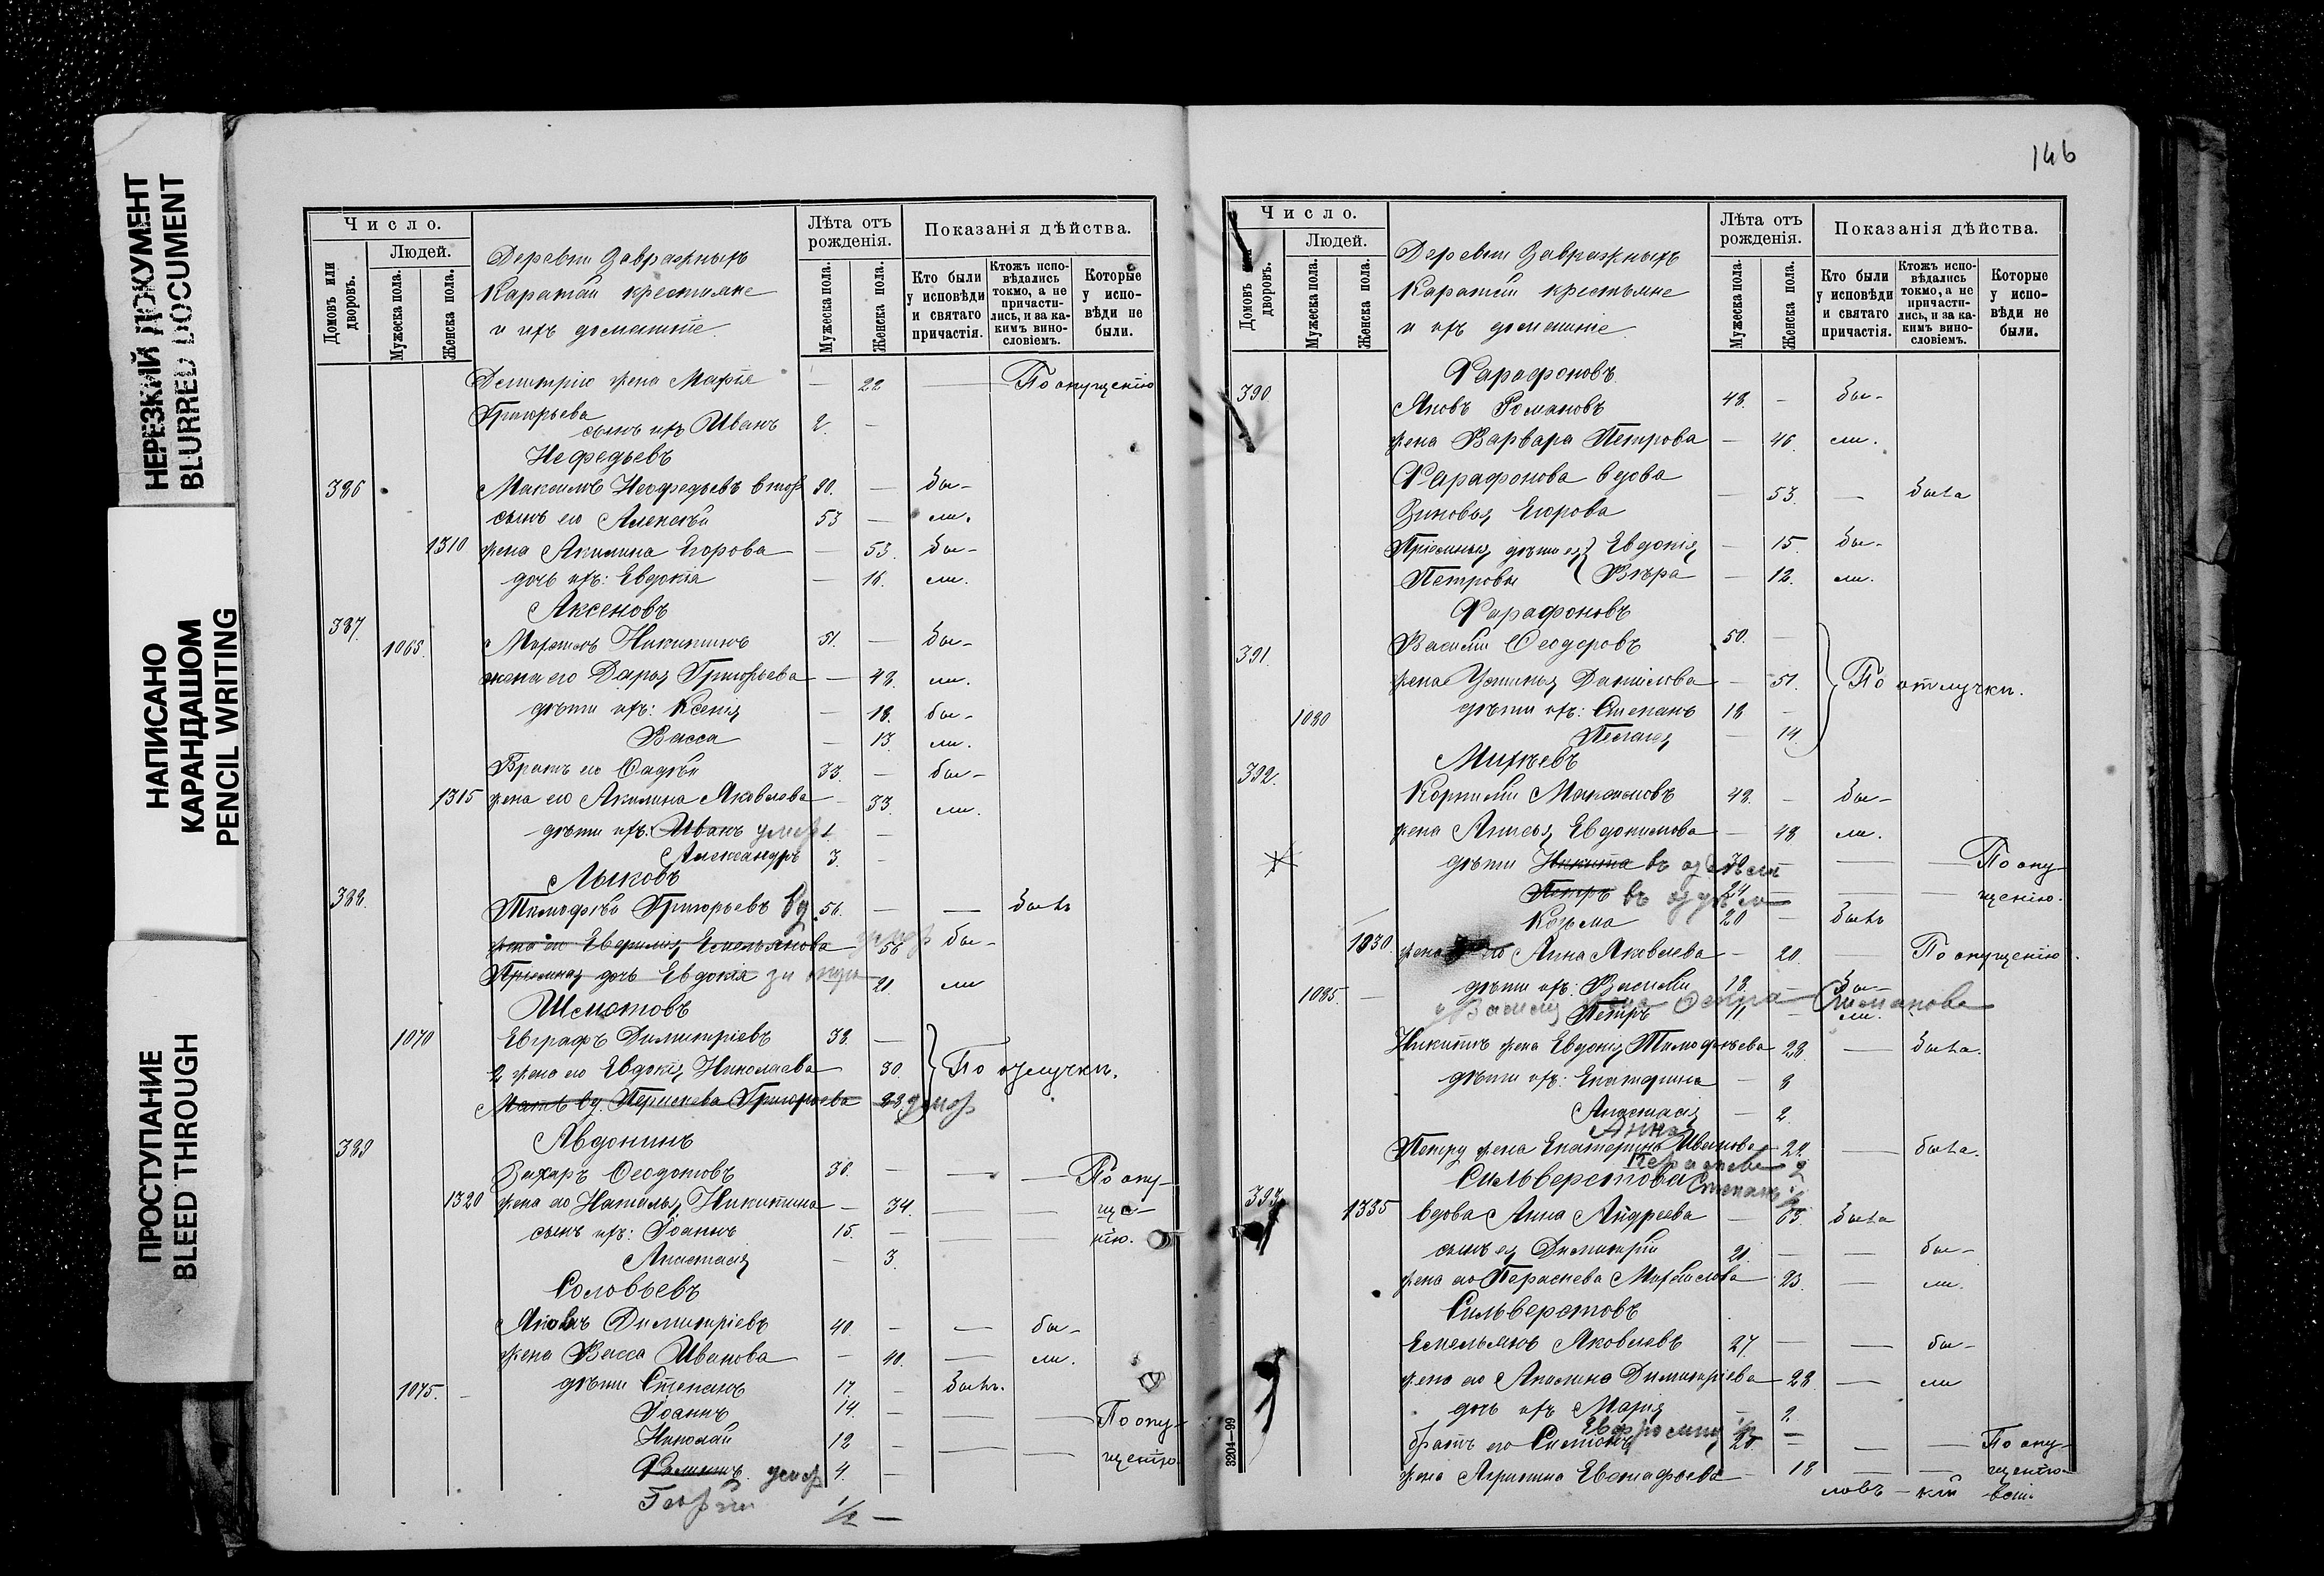 НЕРЕЗКИЙ ДОКУМЕНТ
BLURRED DOCUMENT
НАПИСАНО
КАРАНДАШОМ
PENCIL WRITING
ПРОСТУПАНИЕ
BLEED THROUGH
Число.
Людей.
Домовъ или дворовъ.
Мужеска пола.
Женска пола.
Деревни Завражныхъ
Каратай крестьяне
и ихъ домашніе
Лѣта отъ рожденія.
Мужеска пола.
Женска пола.
Показанія дѣйства.
Кто были у исповѣди и святаго причастія.
Ктожъ исповѣдались токмо, а не причастились, и за какимъ винословіемъ.
Которые у исповѣди не были.
Димитрію жена Марія — 22 По опущенію
Григорьева
сынъ ихъ Иванъ 2. —
Нефедьевъ
386 Максимъ Неофедьевъ 80. — бы-
сынъ его Алексѣй 53 — ли.
1310 жена Акилина Егорова — 53. бы-
дочь ихъ: Евдокія — 16. ли.
Аксеновъ
387. 1065. Никитинъ 51. — бы-
жена его Дарья Григорьева — 48. ли.
дѣти ихъ: Ксенія — 18. бы-
Васса — 13. ли.
Братъ его 33. — бы-
1315 жена его Акилина Яковлева — 33. ли.
дѣти ихъ: Иванъ умер 1. —
Александръ 3. —
Лыковъ
388. Тимофѣй Григорьевъ вд. 56. — — былъ
жена его Емельянова умер 58 бы-
Пріемная дочь Евдокія 21. ли
Шематовъ
1070 Евграфъ Димитріевъ 38. —
2 жена его Евдокія Николаева 30. По отлучки.
Мать вд. Параскева Григорьева умер
389 Авдонинъ
Захаръ Феодотовъ 36. — — — По опу-
1320 жена его Наталья Никитина — 34. — — ще-
сынъ ихъ: Іоаннъ 15. — — — нію.
Анастасія — 3.
Соловьевъ
Яковъ Димитріевъ 40. — — бы-
жена Васса Иванова — 40. — ли.
1075. дѣти Степанъ 17. — былъ.
Іоаннъ 14. — — — По опу-
Николай 12 — — — щенію.
умер 4. —
Георгій 1/2 —
146
Число.
Людей.
дворовъ.
Мужеска пола.
Женска пола.
Деревни Завражныхъ
Каратай крестьяне
и ихъ домашніе
Лѣта отъ рожденія.
Мужеска пола.
Женска пола.
Показанія дѣйства.
Кто были у исповѣди и святаго причастія.
Ктожъ исповѣдались токмо, а не причастились, и за какимъ винословіемъ.
Которые у исповѣди не были.
Фарафоновъ
390. Яковъ Романовъ 48. — бы-
жена Варвара Петрова — 46. ли.
Фарафонова вдова
Зиновья Егорова — 53. — была
Пріемныя дѣти ея Евдокія — 15. бы-
Петровы Вѣра — 12. ли.
Фарафоновъ
391. Василій Феодоровъ 50. —
жена Устинья Данилова — 51. По отлучки.
1080 дѣти ихъ: Степанъ 18 —
Пелагея — 14.
Михѣевъ
392. Корнилій Максимовъ 48. — бы-
жена Анисья Евдокимова — 48 ли.
дѣти Никита 30 — — — По опу-
Петръ 24 — — — щенію.
Козьма 20 — былъ
1830 жена его Анна Яковлева — 20. — По опущенію.
1085. — дѣти ихъ: Василій 18. — бы-
Петръ 11 — ли.
Степанова
Никитѣ жена Евдокія Тимофѣева 28. — была.
дѣти ихъ: Екатерина — 8
Анастасія — 2.
Анна
Петру жена Екатерина Иванова — 22. — была.
Сильверстова
393. 1335 вдова Анна Андреева — 63. была
сынъ ея Димитрій 21. — — бы-
жена его Параскева 23. — ли.
Сильверстовъ
Емельянъ Яковлевъ 27. — — бы-
жена его Акилина Димитріева — 28. — ли
дочь ихъ Марія — 2.
братъ его — — По опу-
жена Агрипина Евстафьева — 18 — — щенію.
ловъ — кій
3204—99